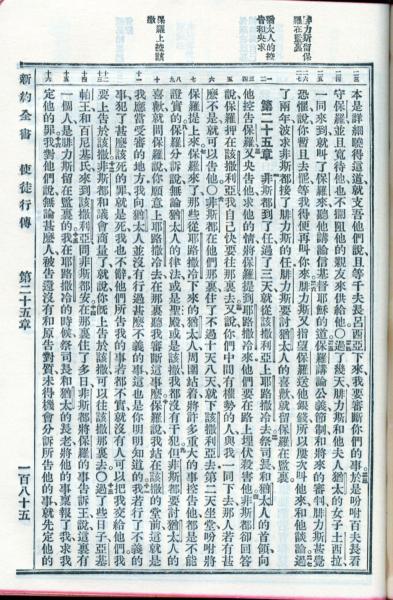 腓力斯留保
羅在監裏
猶太人的控
告和央求
保羅上控該
撒
本是詳細曉得這道就支吾他們說且等千夫長呂西亞下來我要審斷你們的事於是吩咐百夫長看
守保羅並且寬待他也不攔阻他的親友來供給他○過了幾天腓力斯和他夫人猶太的女子土西拉
一同來到就叫了保羅來聽他講論信基督耶穌的道保羅講論公義節制和將來的審判腓力斯甚覺
恐懼說你暫且去罷等我得便再叫你來腓力斯又指望保羅送他銀錢所以屢次叫他來和他談論過
了兩年波求非斯都接了腓力斯的任腓力斯要討猶太人的喜歡就留保羅在監裏
第二十五章 非斯都到了任過了三天就從該撒利亞上耶路撒冷去祭司長和猶太人的首領向
他控告保羅又央告他求他的情將保羅提到耶路撒冷來他們要在路上埋伏殺害他非斯都卻回答
說保羅押在該撒利亞我自己快要往那裏去又說你們中間有權勢的人與我一同下去那人若有甚
麼不是就可以告他○非斯都在他們那裏住了不過十天八天就下該撒利亞去第二天坐堂吩咐將
保羅提上來保羅來了那些從耶路撒冷下來的猶太人周圍站着將許多重大的事控告他都是不能
證實的保羅分訴說無論猶太人的律法或是聖殿或是該撒我都沒有干犯但非斯都要討猶太人的
喜歡就問保羅說你願意上耶路撒冷去在那裏聽我審斷這事麼保羅說我站在該撒的堂前這就是
我應當受審的地方我向猶太人並沒有行過甚麼不義的事這也是你明明知道的我若行了不義的
事犯了甚麼該死的罪就是死我也不辭他們所告我的事若都不實就沒有人可以把我交給他們我
要上告於該撒非斯都和議會商量了就說你既上告於該撒可以往該撒那裏去○過了些日子亞基
帕王和百尼基氏來到該撒利亞問非斯都安在那裏住了多日非斯都將保羅的事告訴王說這裏有
一個人是腓力斯留在監裏的我在耶路撒冷的時候祭司長和猶太的長老將他的事稟報了我求我
定他的罪我對他們說無論甚麼人被告還沒有和原告對質未得機會分訴所告他的事就先定他的
新約全書 使徒行傳 第二十五章 一百八十五